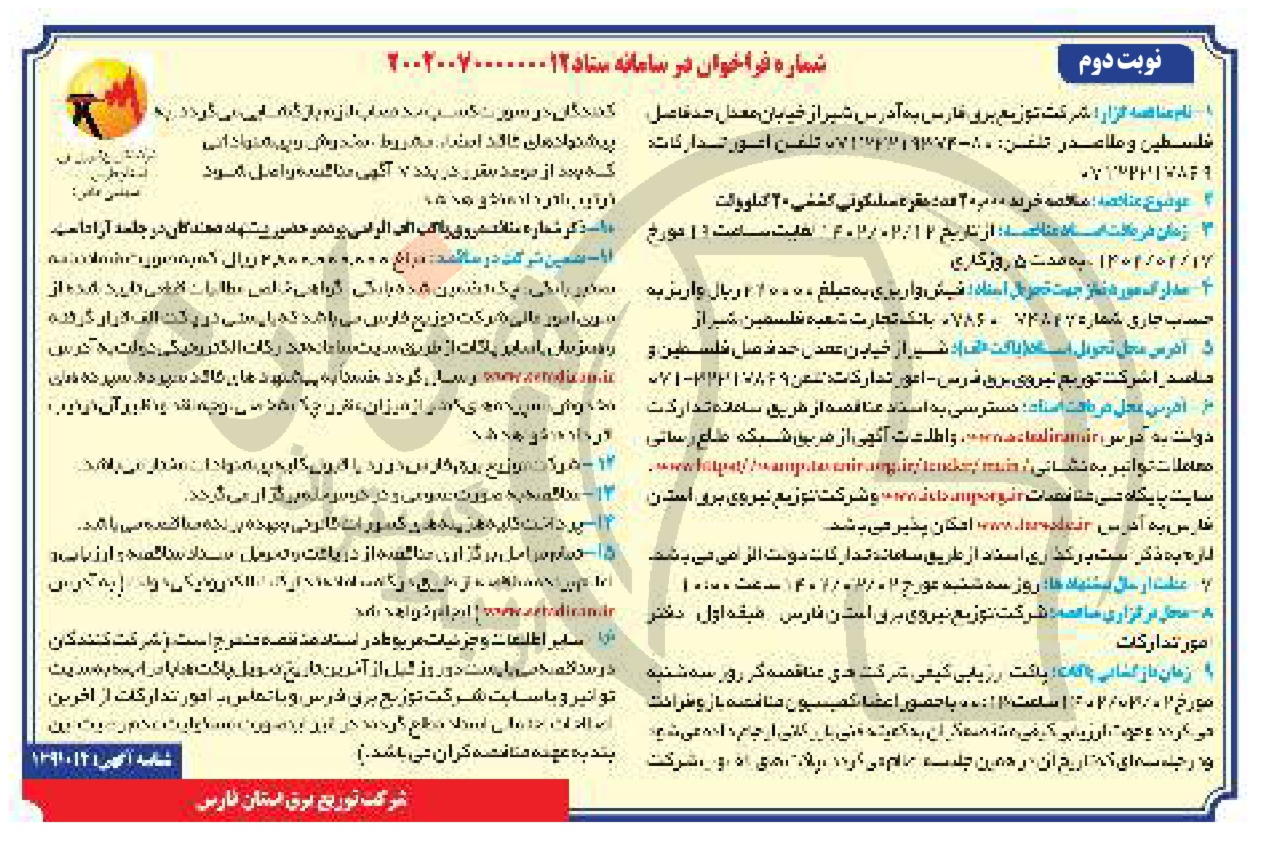 نوبت دوم
شماره فراخوان در سامانه ستاد
۱- نام مناقصه گزار: شرکت توزیع برق فارس به آدرس شیراز خیابان معدل حدفاصل
فلسطین و ملاصدرا تلفن: تلفن امور تدارکات:
۰۷۱۳۲۳۱۷۸۶۹
۲- موضوع مناقصه: مناقصه خرید عدد مقره سیلیکونی کششی ۲۰ کیلوولت
۳- زمان دریافت اسناد مناقصه: از تاریخ ۱۴۰۲/۰۲/۱۲ لغایت ساعت ۱۹ مورخ
۱۴۰۲/۰۲/۱۷ به مدت ۵ روز کاری
۴- مدارک مورد نیاز جهت تحویل اسناد: فیش واریزی به مبلغ ریال واریز به
حساب جاری شماره بانک تجارت شعبه فلسطین شیراز
۵- آدرس محل تحویل اسناد (پاکت الف): شیراز خیابان معدل حدفاصل فلسطین و
ملاصدرا شرکت توزیع نیروی برق فارس - امور تدارکات تلفن ۳۲۳۱۷۸۶۹-۰۷۱
۶- آدرس محل دریافت اسناد: دسترسی به اسناد مناقصه از طریق سامانه تدارکات
دولت به آدرس www.setadiran.ir و اطلاعات آگهی از طریق شبکه اطلاع رسانی
معاملات توانیر به نشانی
سایت پایگاه ملی مناقصات و شرکت توزیع نیروی برق استان
فارس به آدرس امکان پذیر می باشد.
لازم به ذکر است بارگذاری اسناد از طریق سامانه تدارکات دولت الزامی می باشد.
۷- مهلت ارسال پیشنهادها: روز سه شنبه مورخ ۱۴۰۲/۰۳/۰۲ ساعت ۱۰:۰۰
۸- محل برگزاری مناقصه: شرکت توزیع نیروی برق استان فارس طبقه اول دفتر
امور تدارکات
۹- زمان بازگشایی پاکات: پاکت ارزیابی کیفی شرکت های مناقصه گر روز سه شنبه
مورخ ۱۴۰۲/۰۳/۰۲ ساعت ۱۲:۰۰ با حضور اعضا کمیسیون مناقصه باز و قرائت
می گردد و جهت ارزیابی کیفی مناقصه گران به کمیته فنی بازرگانی ارجاع داده می شود
و در جلسه ای که تاریخ آن در همین جلسه اعلام می گردد پاکت های شرکت
کنندگان در صورت کسب حد نصاب لازم بازگشایی می گردد. به
پیشنهادهای فاقد امضاء، مشروط، مخدوش و پیشنهاداتی
که بعد از موعد مقرر در بند ۷ آگهی مناقصه واصل شود
ترتیب اثر داده نخواهد شد.
۱۰- ذکر شماره مناقصه روی پاکت الف الزامی بوده و حضور پیشنهاد دهندگان در جلسه آزاد است.
۱۱- تضمین شرکت در مناقصه: مبلغ ریال که به صورت ضمانتنامه
معتبر بانکی، چک تضمین شده بانکی، گواهی خالص مطالبات قطعی تایید شده از
سوی امور مالی شرکت توزیع فارس می باشد که بایستی در پاکت الف قرار گرفته
و همزمان با سایر پاکات از طریق سایت سامانه تدارکات الکترونیکی دولت به آدرس
www.setadiran.ir ارسال گردد ضمنا به پیشنهادهای فاقد سپرده، سپرده های
مخدوش، سپرده های کمتر از میزان مقرر، چک شخصی، وجه نقد و نظایر آن ترتیب
اثر داده نخواهد شد.
۱۲- شرکت توزیع برق فارس در رد یا قبول کلیه پیشنهادات مختار می باشد.
۱۳- مناقصه به صورت عمومی و دو مرحله برگزار می گردد.
۱۴- پرداخت کلیه هزینه های کسورات قانونی بعهده برنده مناقصه می باشد.
۱۵- تمام مراحل برگزاری مناقصه از دریافت و تحویل اسناد مناقصه و ارزیابی و
اعلام برنده مناقصه از طریق درگاه سامانه تدارکات الکترونیکی دولت ( به آدرس
www.setadiran.ir ) انجام خواهد شد
۱۶- سایر اطلاعات و جزئیات مربوطه در اسناد مناقصه مندرج است. (شرکت کنندگان
در مناقصه می بایست دو روز قبل از آخرین تاریخ تحویل پاکت ها با مراجعه به سایت
توانیر و یا سایت شرکت توزیع برق فارس و یا تماس با امور تدارکات از آخرین
اصلاحات احتمالی اسناد مطلع گردند در غیر اینصورت مسئولیت عدم رعایت این
بند به عهده مناقصه گران می باشد.)
شناسه آگهی:
شرکت توزیع برق استان فارس